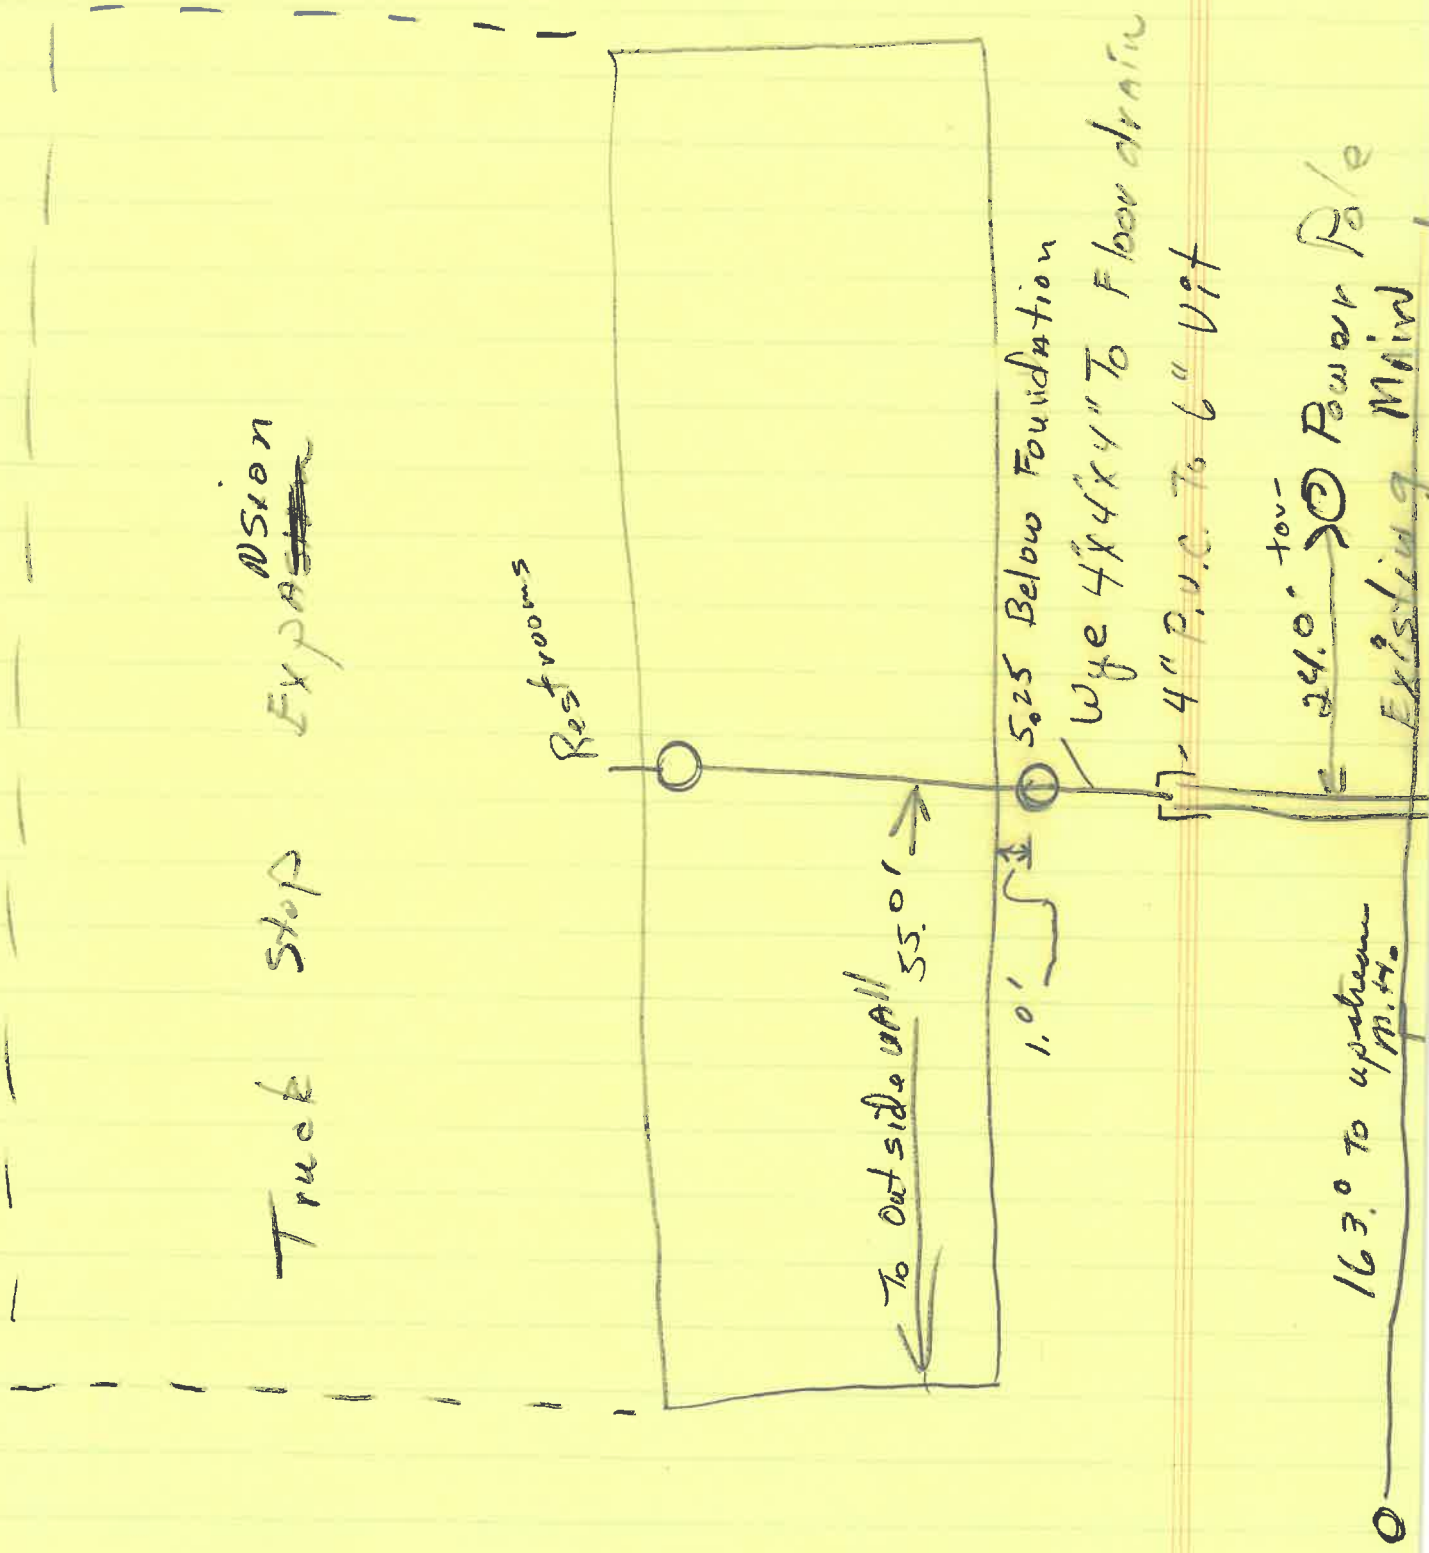 Truck Stop Expansion
Restrooms
To Outside wall
55.0'
1.0'
5.25 Below Foundation
Wye 4"x4"x4" To Floor drain
4" P.V.C. To 6" Vit
24.0' + or -
Power Pole
Existing Main
163.0 To upstream
M.H.